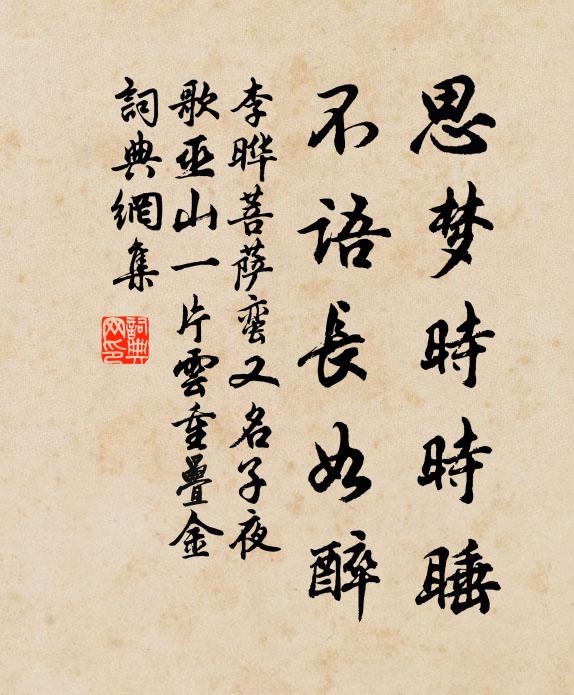 思梦時時睡
不語長如醉
李晔菩萨蛮又名子夜
歌巫山一片雲重疊金
詞典網集
詞典網印